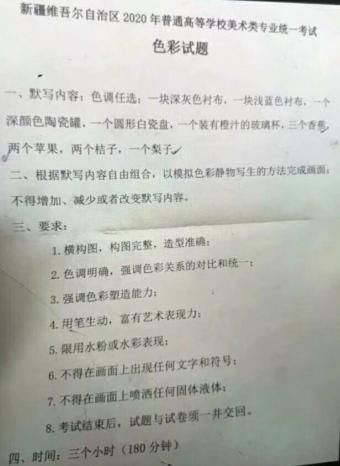 新疆维吾尔自治区2020年普通高等学校美术类专业统一考试
色彩试题
一、默写内容：色调任选；一块深灰色衬布，一块浅蓝色衬布，一个
深颜色陶瓷罐，一个圆形白瓷盘，一个装有橙汁的玻璃杯，三个香蕉，
两个苹果，两个桔子，一个梨子
二、根据默写内容自由组合，以模拟色彩静物写生的方法完成画面；
不得增加、减少或者改变默写内容。
三、要求：
1.横构图，构图完整，造型准确；
2.色调明确，强调色彩关系的对比和统一；
3.强调色彩塑造能力；
4.用笔生动，富有艺术表现力；
5.限用水粉或水彩表现；
6.不得在画面上出现任何文字和符号；
7.不得在画面上喷洒任何固体液体；
8.考试结束后，试题与试卷须一并交回。
四、时间：三个小时（180分钟）